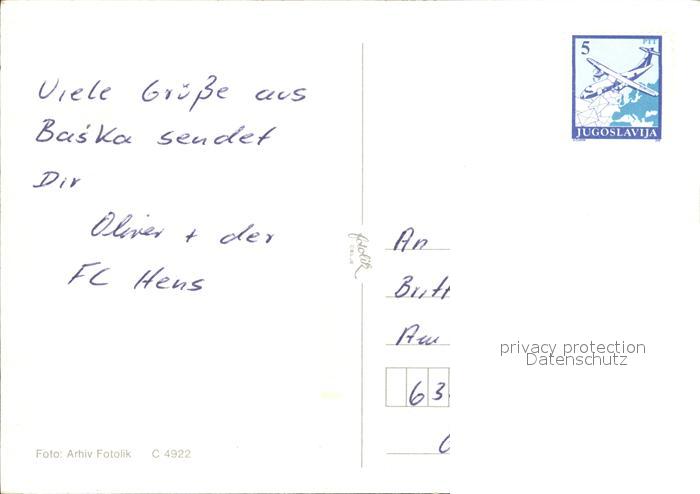 Viele Grüße aus
Baška sendet
Dir
Oliver + der
FC Hens
Foto: Arhiv Fotolik C 4922
fotolik
CELJE
5
PTT
JUGOSLAVIJA
An
Britt
Am
63
privacy protection
Datenschutz